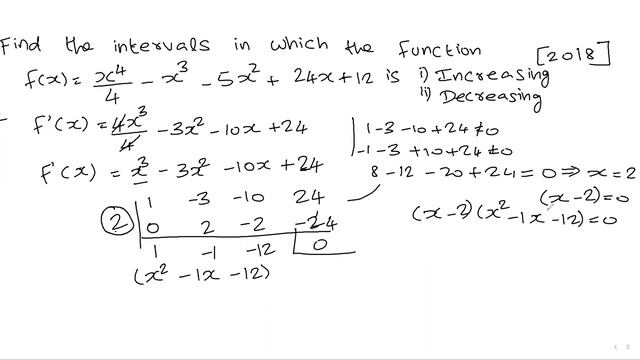 Find the intervals in which the function [2018]
f(x) = x⁴/4 - x³ - 5x² + 24x + 12 is i) Increasing
ii) Decreasing
f'(x) = 4x³/4 - 3x² - 10x + 24
f'(x) = x³ - 3x² - 10x + 24
1 - 3 - 10 + 24 ≠ 0
-1 - 3 + 10 + 24 ≠ 0
8 - 12 - 20 + 24 = 0 ⇒ x = 2
(x - 2) = 0
(x - 2) (x² - 1x - 12) = 0
1 -3 -10 24
2 0 2 -2 -24
1 -1 -12 0
(x² - 1x - 12)
2